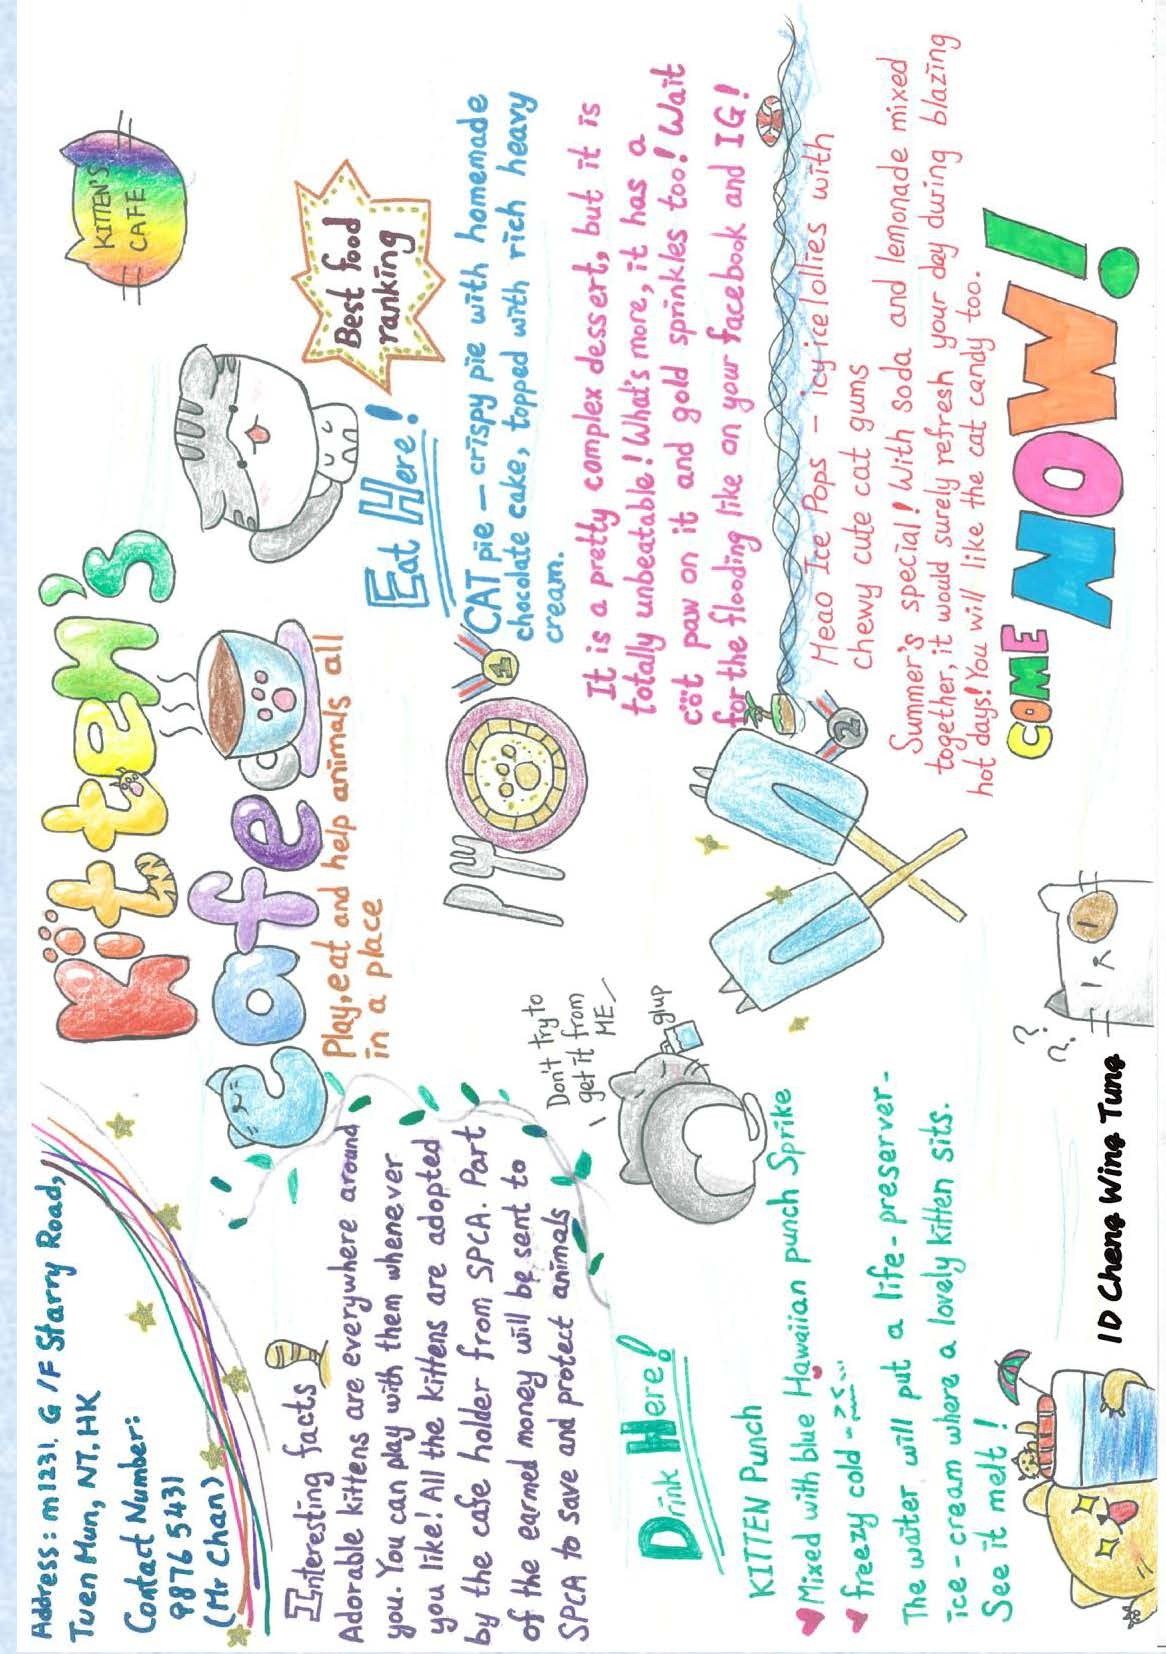 Address: m1231. G/F Starry Road,
Tuen Mun, NT, HK
Contact Number:
9876 5431
(Mr Chan)
Kitten's
Cafe
Play, eat and help animals all
in a place
KITTEN'S
CAFE
Interesting facts
Adorable kittens are everywhere around
you. You can play with them whenever
you like! All the kittens are adopted
by the cafe holder from SPCA. Part
of the earned money will be sent to
SPCA to save and protect animals
Eat Here!
Best food
ranking
1
CAT pie - crispy pie with homemade
chocolate cake, topped with rich heavy
cream.
It is a pretty complex dessert, but it is
totally unbeatable! What's more, it has a
cat paw on it and gold sprinkles too! Wait
for the flooding like on your facebook and IG!
2
Meao Ice Pops - icy ice lollies with
chewy cute cat gums
Summer's special! With soda and lemonade mixed
together, it would surely refresh your day during blazing
hot days! You will like the cat candy too.
Don't try to
get it from
ME
glup
Drink Here!
KITTEN Punch
Mixed with blue Hawaiian punch Sprike
freezy cold ->.<...
The water will put a life-preserver-
ice-cream where a lovely kitten sits.
See it melt!
? ?
COME NOW!
1D Cheng Wing Tung